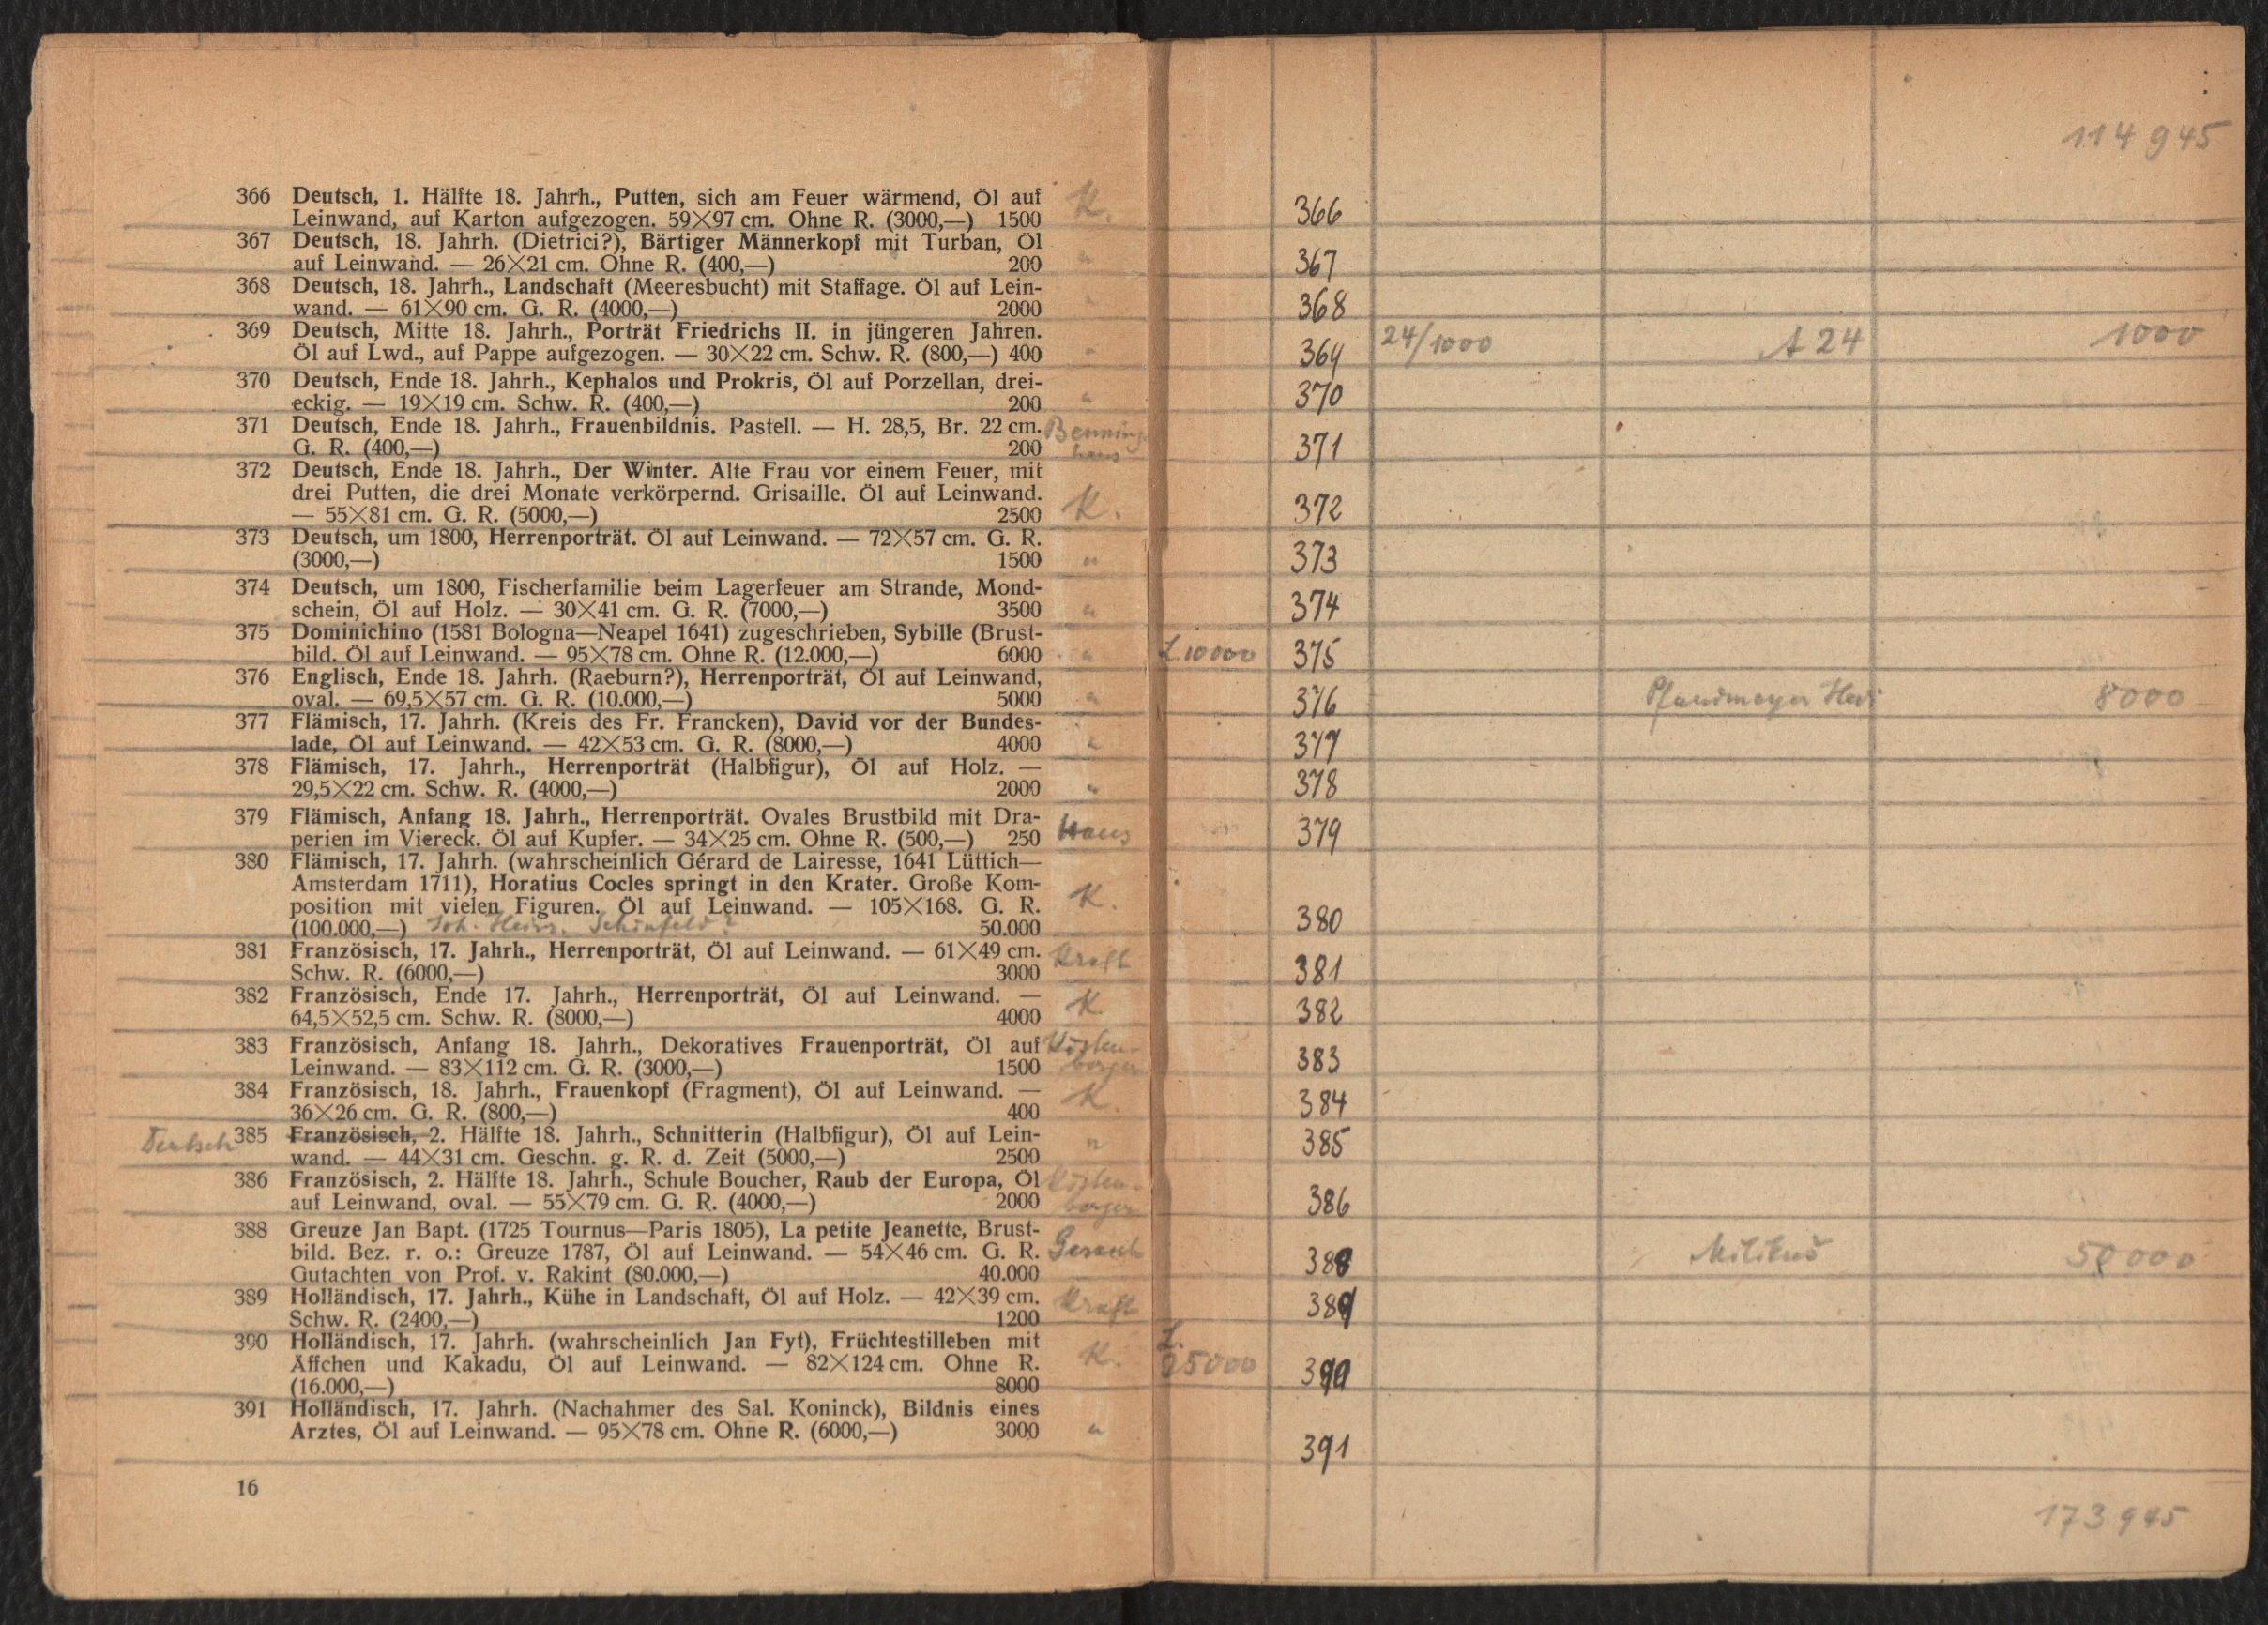 366 Deutsch, 1. Hälfte 18. Jahrh., Putten, sich am Feuer wärmend, Öl auf K.
Leinwand, auf Karton aufgezogen. 59×97 cm. Ohne R. (3000,—) 1500
367 Deutsch, 18. Jahrh. (Dietrici?), Bärtiger Männerkopf mit Turban, Öl
auf Leinwand. — 26×21 cm. Ohne R. (400,—) 200 "
368 Deutsch, 18. Jahrh., Landschaft (Meeresbucht) mit Staffage. Öl auf Lein-
wand. — 61×90 cm. G. R. (4000,—) 2000 "
369 Deutsch, Mitte 18. Jahrh., Porträt Friedrichs II. in jüngeren Jahren.
Öl auf Lwd., auf Pappe aufgezogen. — 30×22 cm. Schw. R. (800,—) 400 "
370 Deutsch, Ende 18. Jahrh., Kephalos und Prokris, Öl auf Porzellan, drei-
eckig. — 19×19 cm. Schw. R. (400,—) 200 "
371 Deutsch, Ende 18. Jahrh., Frauenbildnis. Pastell. — H. 28,5, Br. 22 cm. Benning
G. R. (400,—) 200 haus
372 Deutsch, Ende 18. Jahrh., Der Winter. Alte Frau vor einem Feuer, mit
drei Putten, die drei Monate verkörpernd. Grisaille. Öl auf Leinwand.
— 55×81 cm. G. R. (5000,—) 2500 K.
373 Deutsch, um 1800, Herrenporträt. Öl auf Leinwand. — 72×57 cm. G. R.
(3000,—) 1500 "
374 Deutsch, um 1800, Fischerfamilie beim Lagerfeuer am Strande, Mond-
schein, Öl auf Holz. — 30×41 cm. G. R. (7000,—) 3500 "
375 Dominichino (1581 Bologna—Neapel 1641) zugeschrieben, Sybille (Brust-
bild. Öl auf Leinwand. — 95×78 cm. Ohne R. (12.000,—) 6000 "
376 Englisch, Ende 18. Jahrh. (Raeburn?), Herrenporträt, Öl auf Leinwand,
oval. — 69,5×57 cm. G. R. (10.000,—) 5000 "
377 Flämisch, 17. Jahrh. (Kreis des Fr. Francken), David vor der Bundes-
lade, Öl auf Leinwand. — 42×53 cm. G. R. (8000,—) 4000 "
378 Flämisch, 17. Jahrh., Herrenporträt (Halbfigur), Öl auf Holz. —
29,5×22 cm. Schw. R. (4000,—) 2000 "
379 Flämisch, Anfang 18. Jahrh., Herrenporträt. Ovales Brustbild mit Dra- Haus
perien im Viereck. Öl auf Kupfer. — 34×25 cm. Ohne R. (500,—) 250
380 Flämisch, 17. Jahrh. (wahrscheinlich Gérard de Lairesse, 1641 Lüttich—
Amsterdam 1711), Horatius Cocles springt in den Krater. Große Kom- K.
position mit vielen Figuren. Öl auf Leinwand. — 105×168. G. R.
(100.000,—) Joh. Heinr. Schönfeld? 50.000
381 Französisch, 17. Jahrh., Herrenporträt, Öl auf Leinwand. — 61×49 cm. Kraft
Schw. R. (6000,—) 3000
382 Französisch, Ende 17. Jahrh., Herrenporträt, Öl auf Leinwand. — K
64,5×52,5 cm. Schw. R. (8000,—) 4000
383 Französisch, Anfang 18. Jahrh., Dekoratives Frauenporträt, Öl auf
Leinwand. — 83×112 cm. G. R. (3000,—) 1500
384 Französisch, 18. Jahrh., Frauenkopf (Fragment), Öl auf Leinwand. — K.
36×26 cm. G. R. (800,—) 400
Deutsch 385 Französisch, 2. Hälfte 18. Jahrh., Schnitterin (Halbfigur), Öl auf Lein- "
wand. — 44×31 cm. Geschn. g. R. d. Zeit (5000,—) 2500
386 Französisch, 2. Hälfte 18. Jahrh., Schule Boucher, Raub der Europa, Öl
auf Leinwand, oval. — 55×79 cm. G. R. (4000,—) 2000
388 Greuze Jan Bapt. (1725 Tournus—Paris 1805), La petite Jeanette, Brust-
bild. Bez. r. o.: Greuze 1787, Öl auf Leinwand. — 54×46 cm. G. R.
Gutachten von Prof. v. Rakint (80.000,—) 40.000
389 Holländisch, 17. Jahrh., Kühe in Landschaft, Öl auf Holz. — 42×39 cm. Kraft
Schw. R. (2400,—) 1200
390 Holländisch, 17. Jahrh. (wahrscheinlich Jan Fyt), Früchtestilleben mit
Äffchen und Kakadu, Öl auf Leinwand. — 82×124 cm. Ohne R. K.
(16.000,—) 8000
391 Holländisch, 17. Jahrh. (Nachahmer des Sal. Koninck), Bildnis eines
Arztes, Öl auf Leinwand. — 95×78 cm. Ohne R. (6000,—) 3000 "
16
114 945
366
367
368
369 24/1000 A 24 1000
370
371
372
373
374
L. 10000 375
376 8000
377
378
379
380
381
382
383
384
385
386
388 Milikus 50 000
389
L.
25000 390
391
173 945